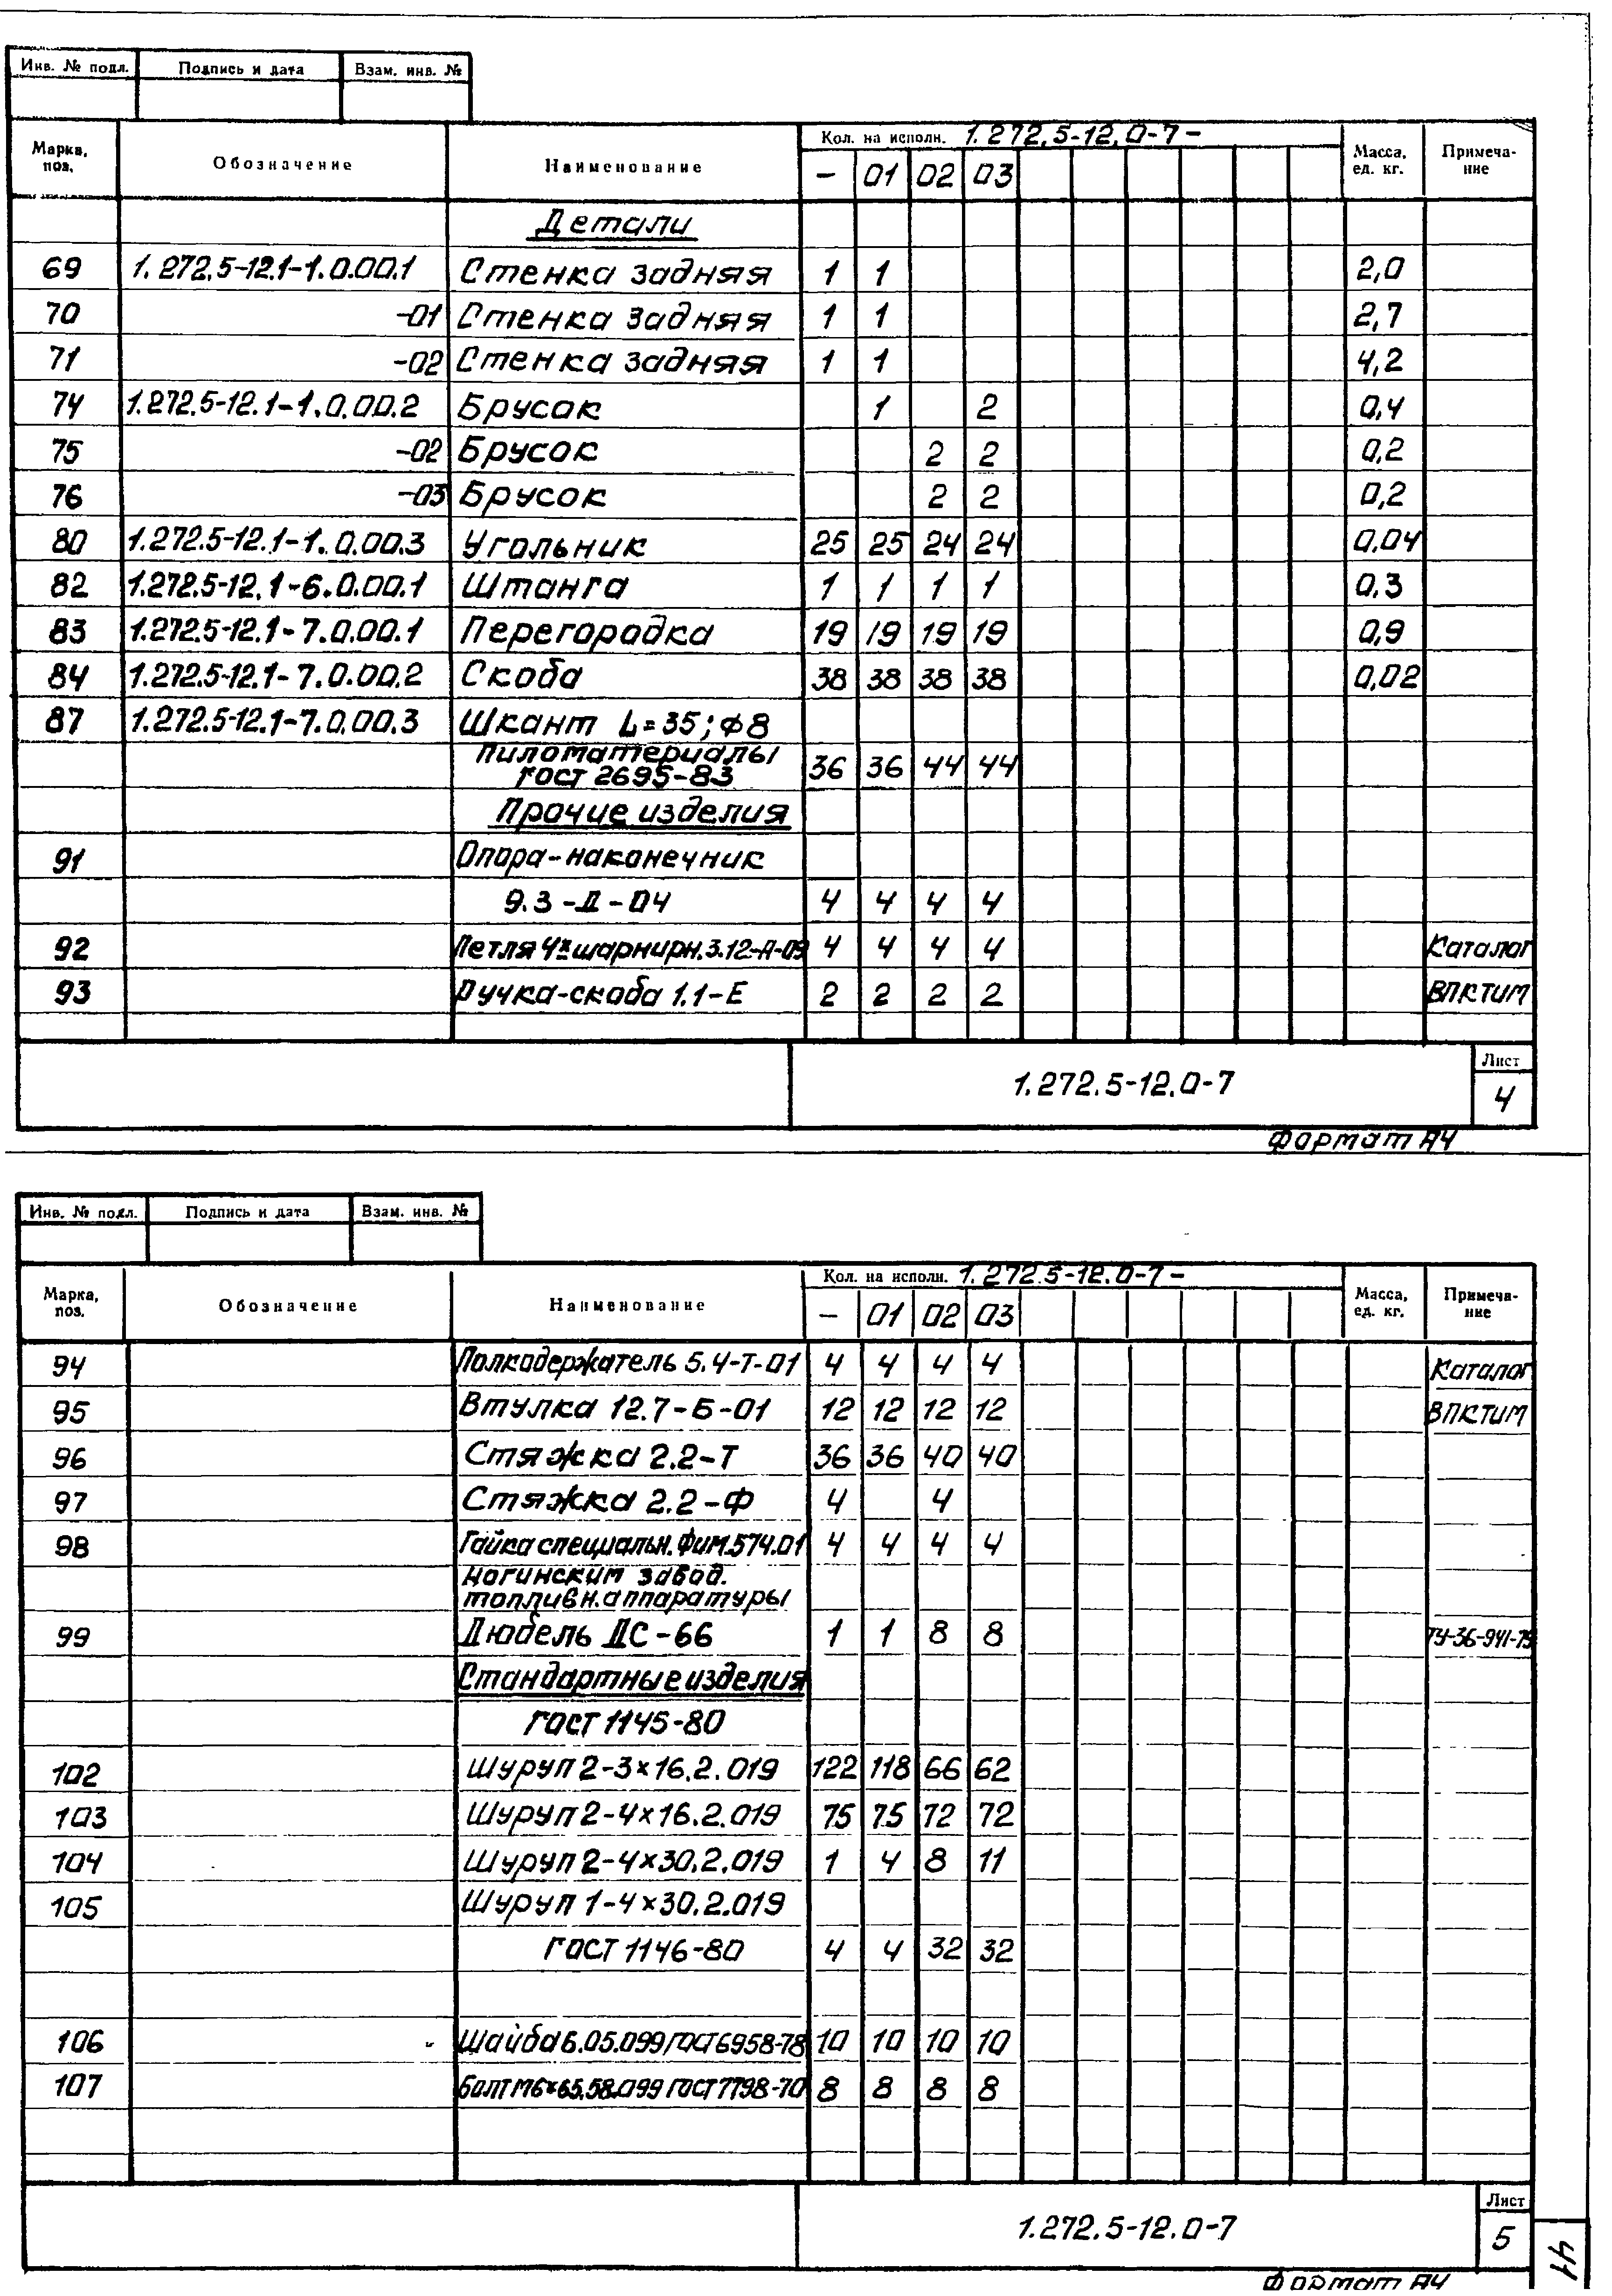 Инв. № подл. Подпись и дата Взам. инв. №
Марка, поз. Обозначение Наименование Кол. на исполн. 1.272.5-12.0-7- Масса, ед. кг. Примеча-ние
– 01 02 03
Детали
69 1.272.5-12.1-1.0.00.1 Стенка задняя 1 1 2,0
70 -01 Стенка задняя 1 1 2,7
71 -02 Стенка задняя 1 1 4,2
74 1.272.5-12.1-1.0.00.2 Брусок 1 2 0,4
75 -02 Брусок 2 2 0,2
76 -03 Брусок 2 2 0,2
80 1.272.5-12.1-1.0.00.3 Угольник 25 25 24 24 0,04
82 1.272.5-12.1-6.0.00.1 Штанга 1 1 1 1 0,3
83 1.272.5-12.1-7.0.00.1 Перегородка 19 19 19 19 0,9
84 1.272.5-12.1-7.0.00.2 Скоба 38 38 38 38 0,02
87 1.272.5-12.1-7.0.00.3 Шкант L=35; ф8
Пиломатериалы
ГОСТ 2695-83 36 36 44 44
Прочие изделия
91 Опора-наконечник
9.3-Д-04 4 4 4 4
92 Петля 4х шарнирн. 3.12-А-09 4 4 4 4 Каталог
93 Ручка-скоба 1.1-Е 2 2 2 2 ВПКТИМ
1.272.5-12.0-7 Лист
4
Формат А4
Инв. № подл. Подпись и дата Взам. инв. №
Марка, поз. Обозначение Наименование Кол. на исполн. 1.272.5-12.0-7- Масса, ед. кг. Примеча-ние
– 01 02 03
94 Полкодержатель 5.4-Т-01 4 4 4 4 Каталог
95 Втулка 12.7-Б-01 12 12 12 12 ВПКТИМ
96 Стяжка 2.2-Т 36 36 40 40
97 Стяжка 2.2-Ф 4 4
98 Гайка специальн. ФиМ.574.01 4 4 4 4
Ногинский завод.
топливн. аппаратуры
99 Дюбель ДС-66 1 1 8 8 ТУ-36-941-75
Стандартные изделия
ГОСТ 1145-80
102 Шуруп 2-3×16.2.019 122 118 66 62
103 Шуруп 2-4×16.2.019 75 75 72 72
104 Шуруп 2-4×30.2.019 1 4 8 11
105 Шуруп 1-4×30.2.019
ГОСТ 1146-80 4 4 32 32
106 Шайба 6.05.099 ГОСТ 6958-78 10 10 10 10
107 Болт М6×65.58.099 ГОСТ 7798-70 8 8 8 8
1.272.5-12.0-7 Лист
5
41
Формат А4